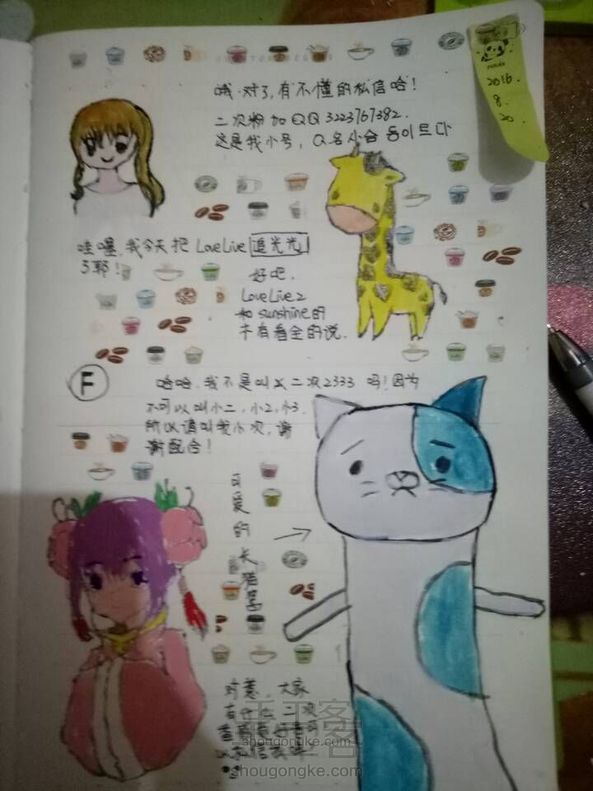 哦,对了,有不懂的私信哈!
二次粉加QQ 3223767382.
这是我小号,Q名
2016.
8.
20.
哇喔,我今天把 LoveLive 追光光
了耶!
好吧.
LoveLive 2
和 sunshine的
木有看全的说.
F
哈哈,我不是叫 二次2333 吗!因为
不可以叫小二,小2,小3.
所以请叫我小次,谢
谢配合!
可爱的长猫君
对惹,大家
有什么二次
shougongke.com
shougongke.com